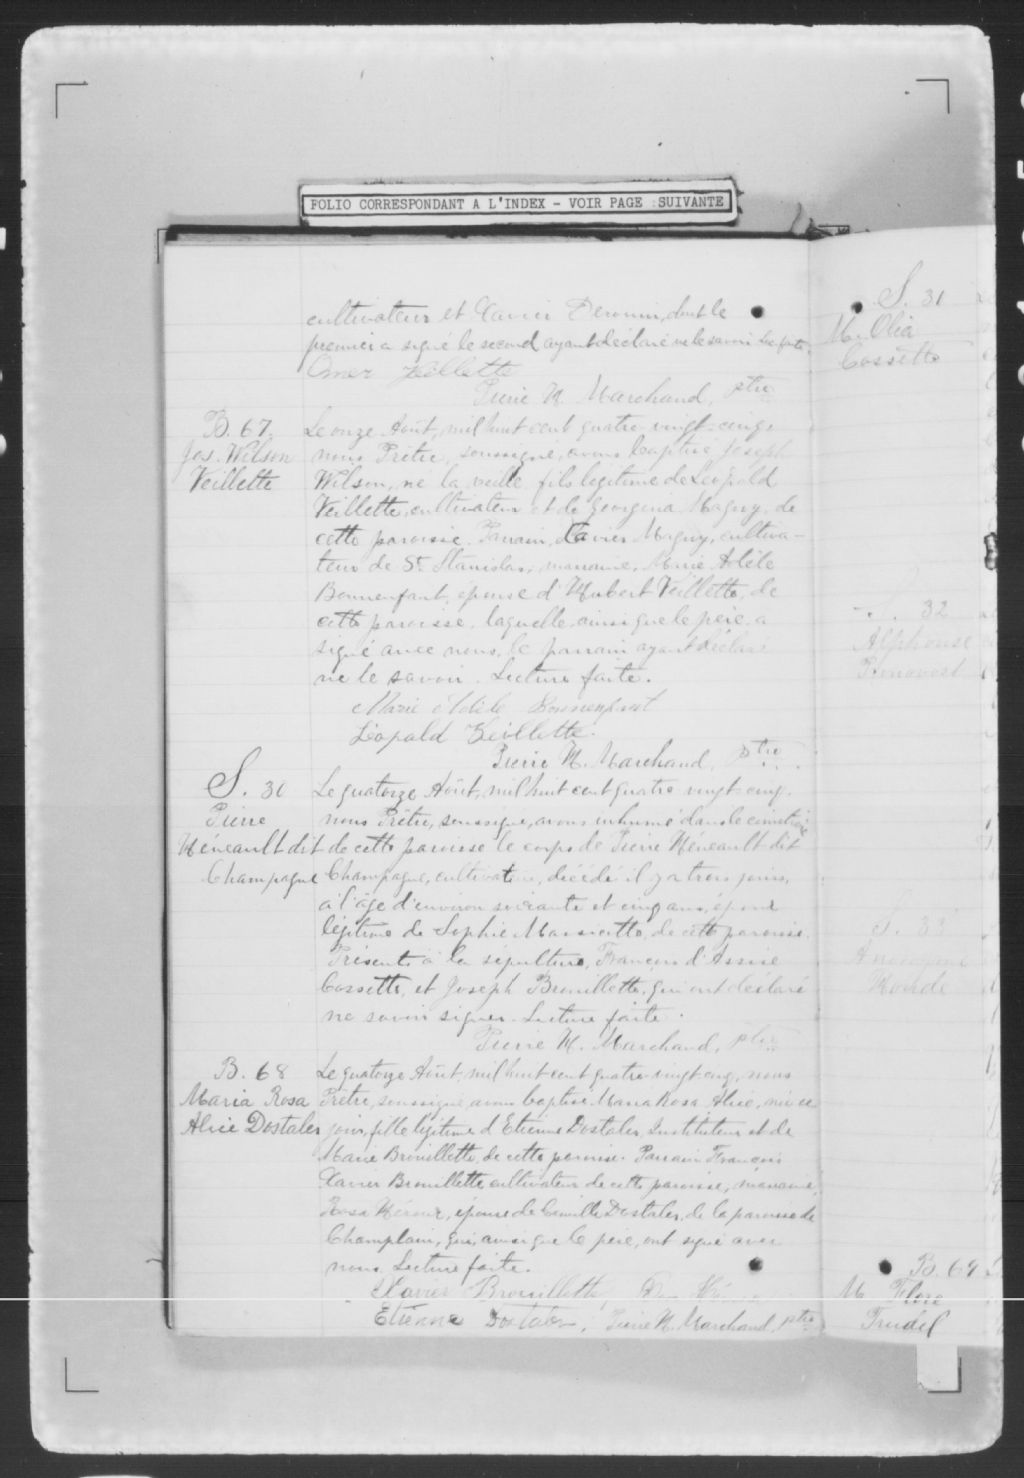 FOLIO CORRESPONDANT A L'INDEX - VOIR PAGE SUIVANTE
cultivateur et Xavier dont le
premier a signé le second ayant déclaré ne le savoir Lec. faite.
Omer Veillette
Pierre H. Marchand, ptre
B. 67
Jos. Wilson
Veillette
Le onze Août, mil huit cent quatre vingt-cinq,
nous Prêtre, soussigné, avons baptisé Joseph
Wilson, né la veille, fils légitime de Léopold
Veillette, cultivateur et de Georgina Magny, de
cette paroisse. Parrain, Xavier Magny, cultiva-
teur de St. Stanislas, marraine, Marie Adèle
Bonnenfant, épouse d'Hubert Veillette, de
cette paroisse, laquelle ainsi que le père a
signé avec nous, le parrain ayant déclaré
ne le savoir. Lecture faite.
Marie Adèle Bonnenfant
Léopold Veillette.
Pierre H. Marchand, ptre
S. 30
Pierre
Héneault dit
Champagne
Le quatorze Août, mil huit cent quatre vingt-cinq,
nous Prêtre, soussigné, avons inhumé dans le cimetière
de cette paroisse le corps de Pierre Héneault dit
Champagne, cultivateur, décédé il y a trois jours,
à l'âge d'environ soixante et cinq ans, époux
légitime de Sophie Massicotte, de cette paroisse.
Présents à la sépulture, François d'Assise
Cossette, et Joseph Brouillette, qui ont déclaré
ne savoir signer. Lecture faite.
Pierre H. Marchand, ptre
B. 68
Maria Rosa
Alice Dostaler
Le quatorze Août, mil huit cent quatre vingt-cinq, nous
Prêtre, soussigné avons baptisé Maria Rosa Alice, née ce
jour, fille légitime d'Etienne Dostaler, Instituteur et de
Marie Brouillette, de cette paroisse. Parrain François
Xavier Brouillette, cultivateur de cette paroisse, marraine,
Rosa épouse de Camille Dostaler, de la paroisse de
Champlain, qui, ainsi que le père, ont signé avec
nous. Lecture faite.
Xavier Brouillette
Etienne Dostaler, Pierre H. Marchand, ptre
S. 31
M. Olia
Cossette
S. 32
Alphonse
S. 33
Anonyme
B. 69
M. Flore
Trudel